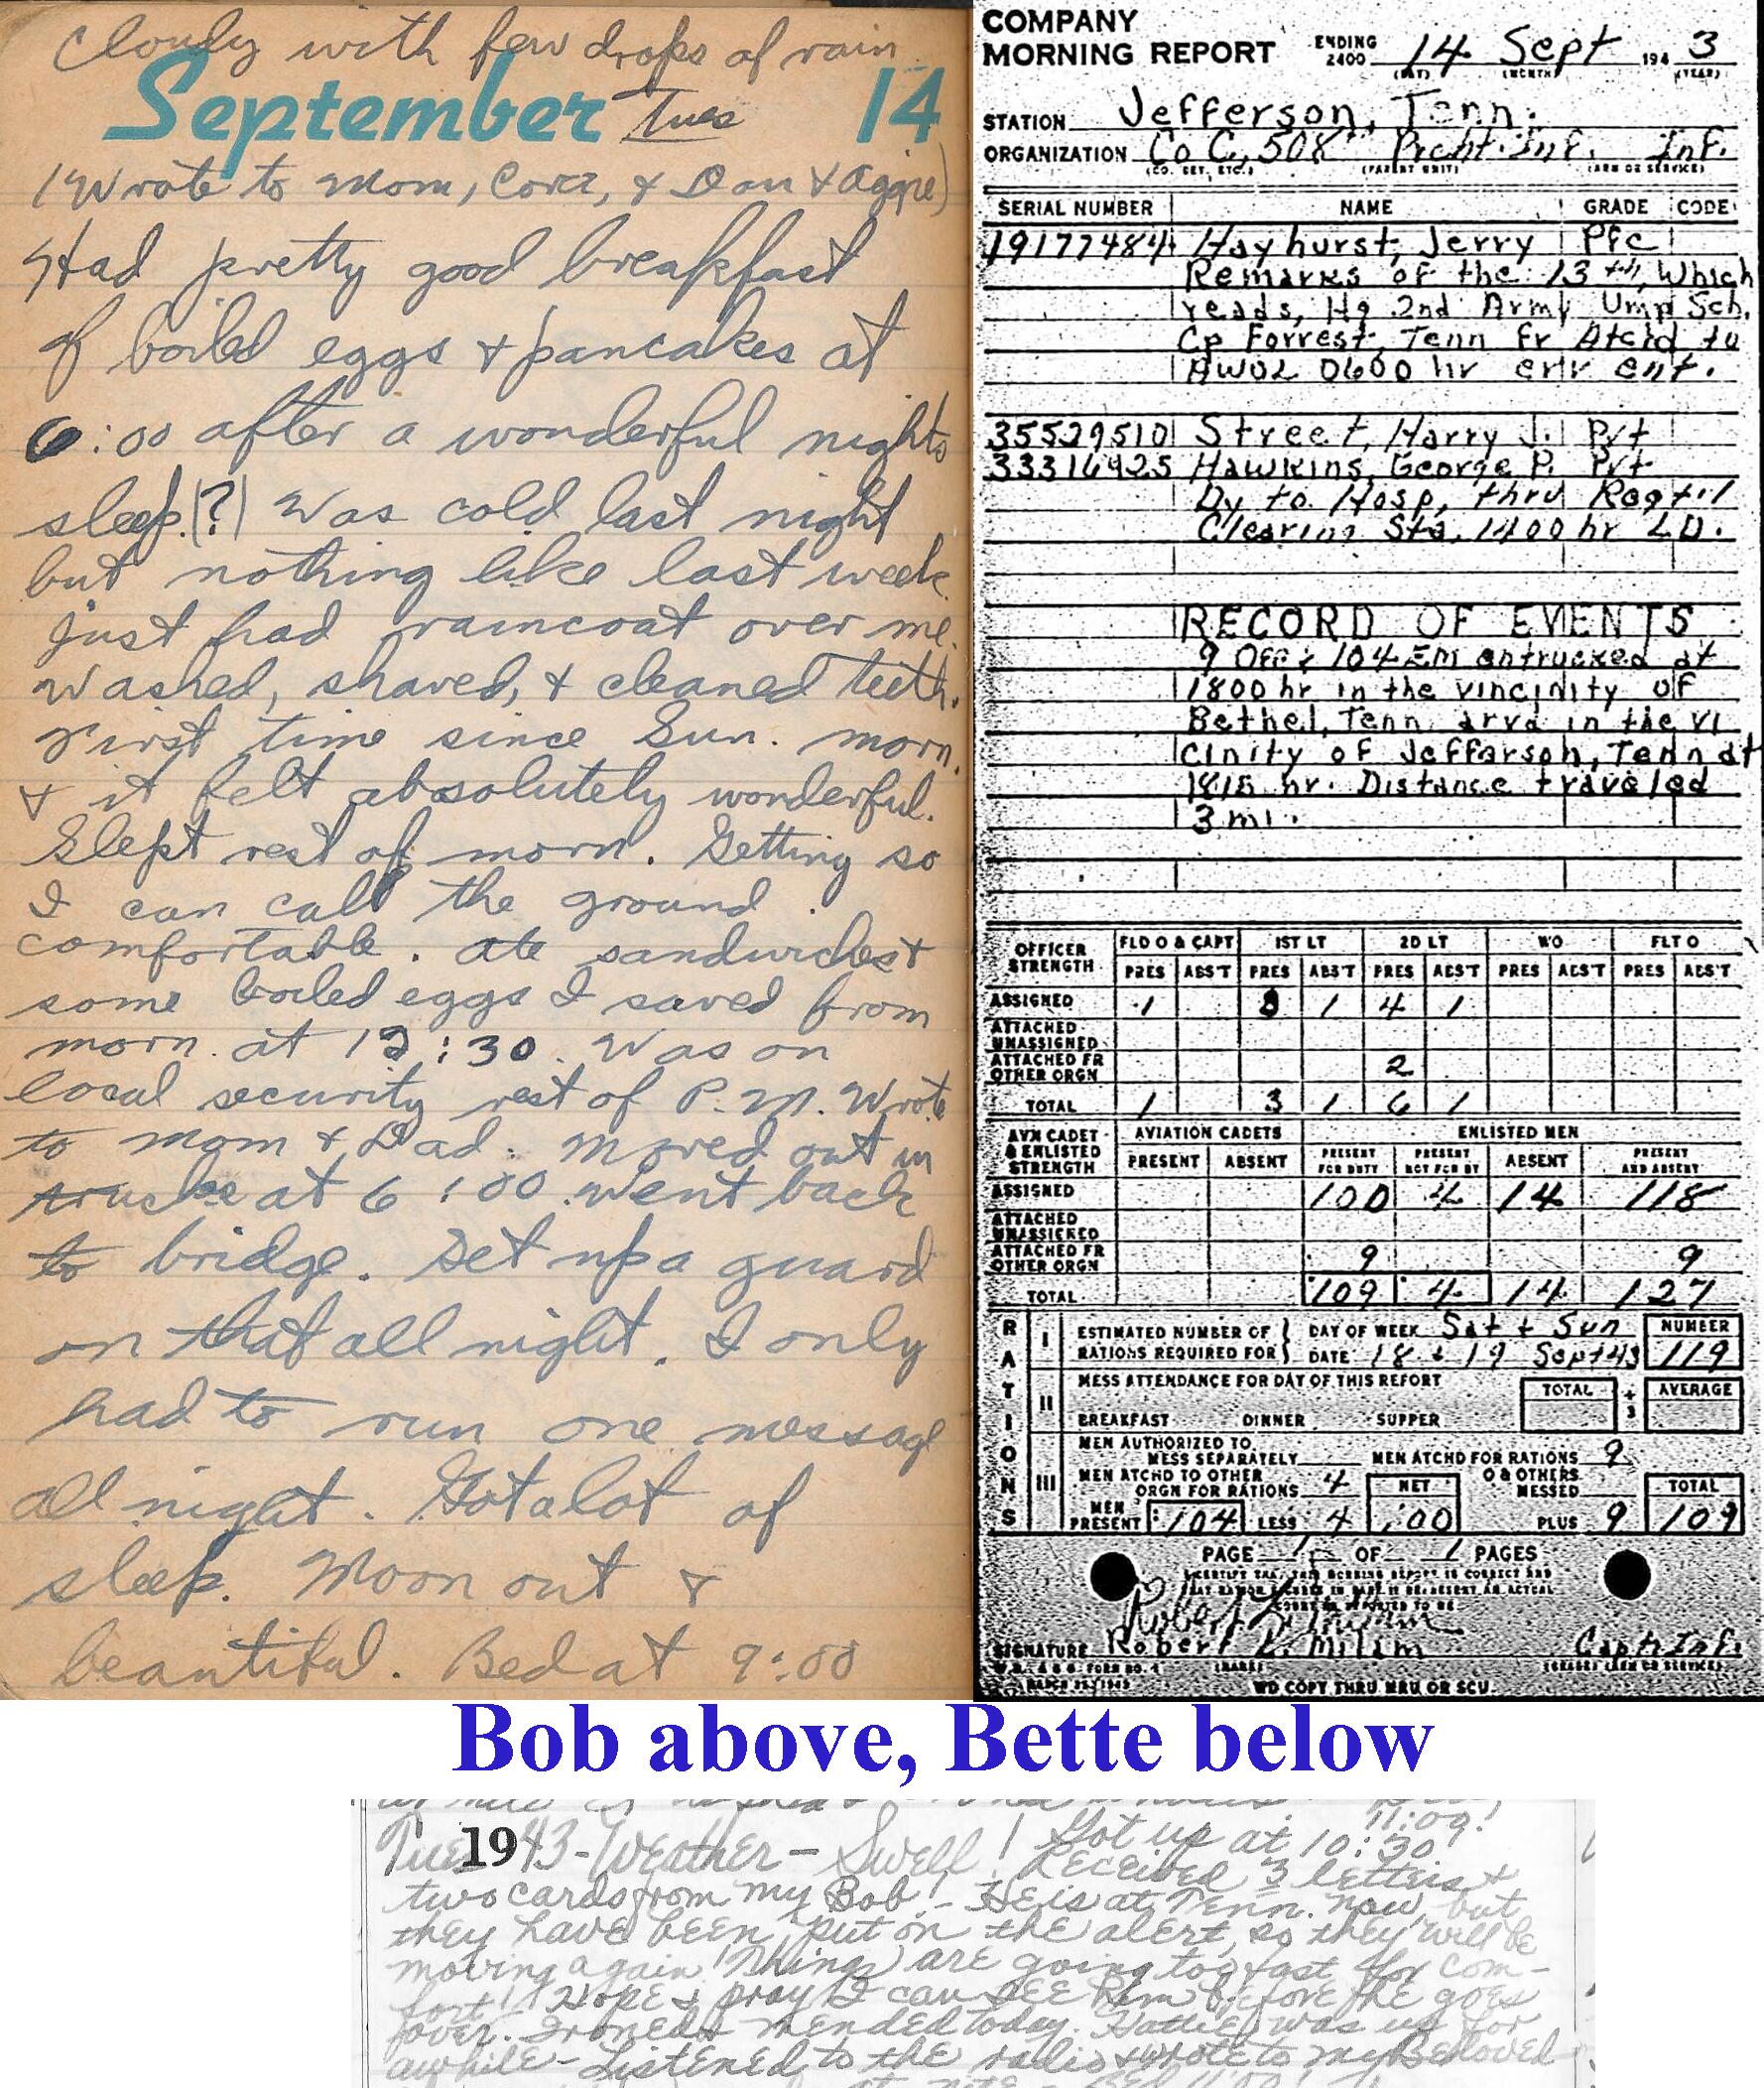 Cloudy with few drops of rain
September Tues 14
(Wrote to Mom, Cora, & Dan & Aggie)
Had pretty good breakfast
of boiled eggs & pancakes at
6:00 after a wonderful nights
sleep.(?) Was cold last night
but nothing like last week.
Just had raincoat over me.
Washed, shaved, & cleaned teeth.
First time since Sun. morn.
& it felt absolutely wonderful.
Slept rest of morn. Getting so
I can call the ground
comfortable. Ate sandwiches &
some boiled eggs I saved from
morn. at 12:30. Was on
local security rest of P.M. Wrote
to Mom & Dad. Moved out in
trucks at 6:00. Went back
to bridge. Set up a guard
on that all night. I only
had to run one message
all night. Got a lot of
sleep. Moon out &
beautiful. Bed at 9:00
COMPANY
MORNING REPORT ENDING 2400 14 Sept 1943
(DAY) (MONTH) (YEAR)
STATION Jefferson, Tenn.
ORGANIZATION Co C, 508th Prcht. Inf. Inf.
(CO. DET, ETC.) (PARENT UNIT) (ARM OR SERVICE)
SERIAL NUMBER NAME GRADE CODE
19177484 Hayhurst, Jerry Pfc
Remarks of the 13th, Which
reads, Hq 2nd Army Ump Sch.
Cp Forrest, Tenn fr Atchd to
AWOL 0600 hr erlr ent.
35529510 Street, Harry J. Pvt
33316925 Hawkins, George P. Pvt
Dy to Hosp, thru Regt'l
Clearing Sta, 1400 hr LD.
RECORD OF EVENTS
9 Off & 104 EM entrucked at
1800 hr in the vincinity of
Bethel, Tenn. arvd in the vi
cinity of Jeffarson, Tenn at
1815 hr. Distance traveled
3 mi.
OFFICER STRENGTH FLD O & CAPT 1ST LT 2D LT WO FLT O
PRES ABS'T PRES ABS'T PRES ABS'T PRES ABS'T PRES ABS'T
ASSIGNED 1 3 1 4 1
ATTACHED UNASSIGNED
ATTACHED FR OTHER ORGN 2
TOTAL 1 3 1 6 1
AVN CADET & ENLISTED STRENGTH AVIATION CADETS ENLISTED MEN
PRESENT ABSENT PRESENT FOR DUTY PRESENT NOT FOR DY ABSENT PRESENT AND ABSENT
ASSIGNED 100 4 14 118
ATTACHED UNASSIGNED
ATTACHED FR OTHER ORGN 9 9
TOTAL 109 4 14 127
RATIONS
I ESTIMATED NUMBER OF RATIONS REQUIRED FOR DAY OF WEEK Sat & Sun NUMBER
DATE 18 & 19 Sept 43 119
II MESS ATTENDANCE FOR DAY OF THIS REPORT TOTAL ÷ 3 AVERAGE
BREAKFAST DINNER SUPPER
III MEN AUTHORIZED TO MESS SEPARATELY MEN ATCHD FOR RATIONS 9
MEN ATCHD TO OTHER ORGN FOR RATIONS 4 NET O & OTHERS MESSED TOTAL
MEN PRESENT 104 LESS 4 100 PLUS 9 109
PAGE 1 OF 1 PAGES
SIGNATURE Robert Capt. Inf.
(NAME) (GRADE) (ARM OR SERVICE)
WD COPY THRU MRU OR SCU.
Bob above, Bette below
11:00!
Tues 1943 - Weather - Swell! Got up at 10:30
Received 3 letters &
two cards from my Bob! - He is at Tenn. now, but
they have been put on the alert, so they will be
moving again! Things are going too fast for com-
fort! Hope & pray I can see him before he goes
over. Ironed & mended today. Hattie was up for
awhile - Listened to the radio & wrote to my Beloved